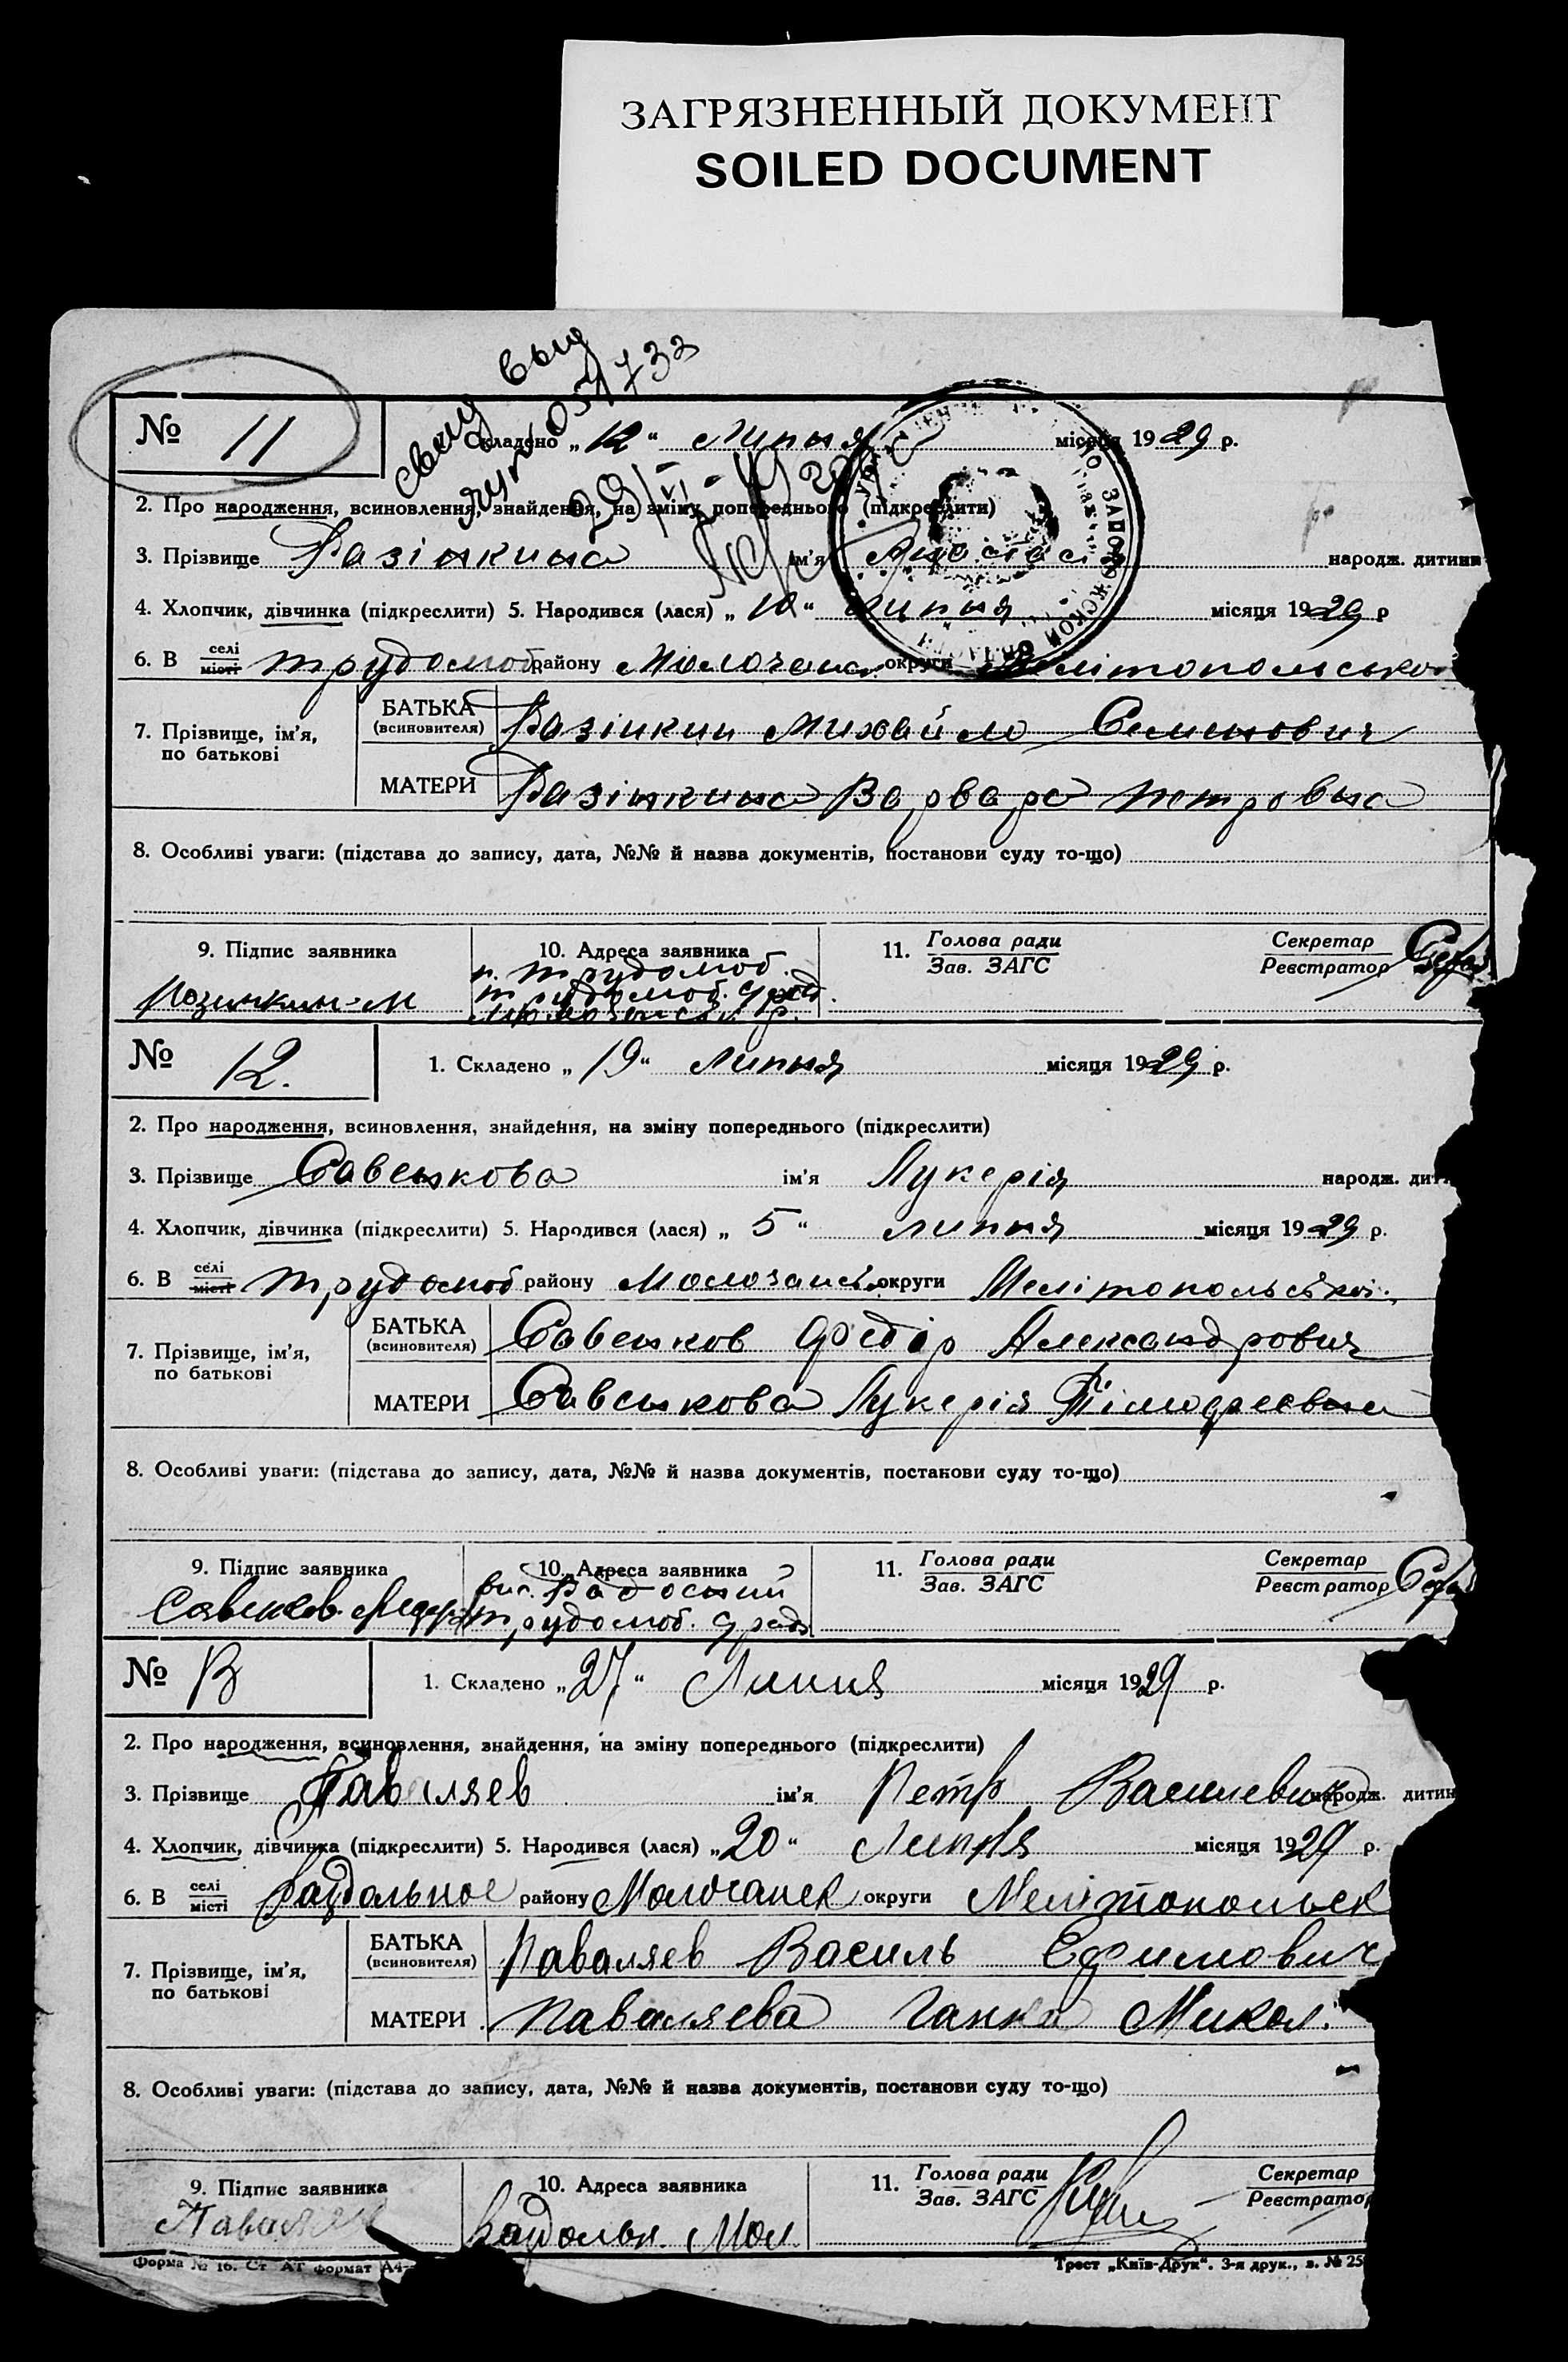 ЗАГРЯЗНЕННЫЙ ДОКУМЕНТ
SOILED DOCUMENT
№ 11 Складено „ 12 “ Липня місяця 1929 р.
2. Про народження, всиновлення, знайдення, на зміну попереднього (підкреслити)
3. Прізвище Разінкина ім'я народж. дитини
4. Хлопчик, дівчинка (підкреслити) 5. Народився (лася) „ 10 “ липня місяця 1929 р
6. В селі місті трудолюб району Молочанск округи Мелітопольської
7. Прізвище, ім'я, по батькові
БАТЬКА (всиновителя) Разінкин Михайло Семенович
МАТЕРИ Разінкина Варвара петровна
8. Особливі уваги: (підстава до запису, дата, №№ й назва документів, постанови суду то-що)
9. Підпис заявника 10. Адреса заявника 11. Голова ради Зав. ЗАГС Секретар Реєстратор
Розинкин-М
п. трудолюб.
трудолюб. с/рад.
№ 12. 1. Складено „ 19 “ липня місяця 1929 р.
2. Про народження, всиновлення, знайдення, на зміну попереднього (підкреслити)
3. Прізвище Савенкова ім'я Лукерія народж. дит
4. Хлопчик, дівчинка (підкреслити) 5. Народився (лася) „ 5 “ липня місяця 1929 р.
6. В селі місті трудолюб району Молочанськ. округи Мелітопольської.
7. Прізвище, ім'я, по батькові
БАТЬКА (всиновителя) Савенков Федір Александрович
МАТЕРИ Савенкова Лукерія Тімофеевна
8. Особливі уваги: (підстава до запису, дата, №№ й назва документів, постанови суду то-що)
9. Підпис заявника 10. Адреса заявника 11. Голова ради Зав. ЗАГС Секретар Реєстратор
Савенков
трудолюб. с/рада
№ 13 1. Складено „ 27 “ Липня місяця 1929 р.
2. Про народження, всиновлення, знайдення, на зміну попереднього (підкреслити)
3. Прізвище Паваляев ім'я Петр Васильевич народж. дитин
4. Хлопчик, дівчинка (підкреслити) 5. Народився (лася) „ 20 “ Липня місяця 1929 р.
6. В селі місті Раздольное району Молочанск округи Мелітопольск
7. Прізвище, ім'я, по батькові
БАТЬКА (всиновителя) Паваляев Василь Ефимович
МАТЕРИ Паваляева Ганна Микол.
8. Особливі уваги: (підстава до запису, дата, №№ й назва документів, постанови суду то-що)
9. Підпис заявника 10. Адреса заявника 11. Голова ради Зав. ЗАГС Секретар Реєстратор
Раздольн. Мол.
Форма № 16. Ст АТ формат А4
Трест „Київ-Друк“. 3-я друк., з. № 25